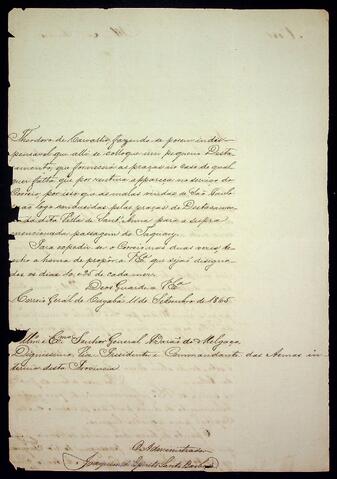 Theodoro de Carvalho, fazendo-se porem indis-
pensavel que alli se colloque um pequeno Desta-
camento, que fornecerá as praças no caso de qual
quer falta que por ventura appareça no serviço do
Correio, por isso que as malas vindas de São Paulo
são logo conduzidas pelas praças do Destacamen-
to da dita Villa de Sant'Anna para a supra
mencionada passagem do Taquary.
Para expedir-se o Correio nas duas vezes, te-
nho a honra de propôr a V Exa que sejaõ designa-
dos os dias 10, e 25 de cada mez.
Deos Guarde a V Exa
Correio Geral de Cuyabá 11 de Setembro de 1865.
Illmo e Exmo Senhor General Barão de Melgaço
Dignissimo Presidente e Commandante das Armas in-
terino desta Provincia
O Administrador
Joaquim do Espirito Santo